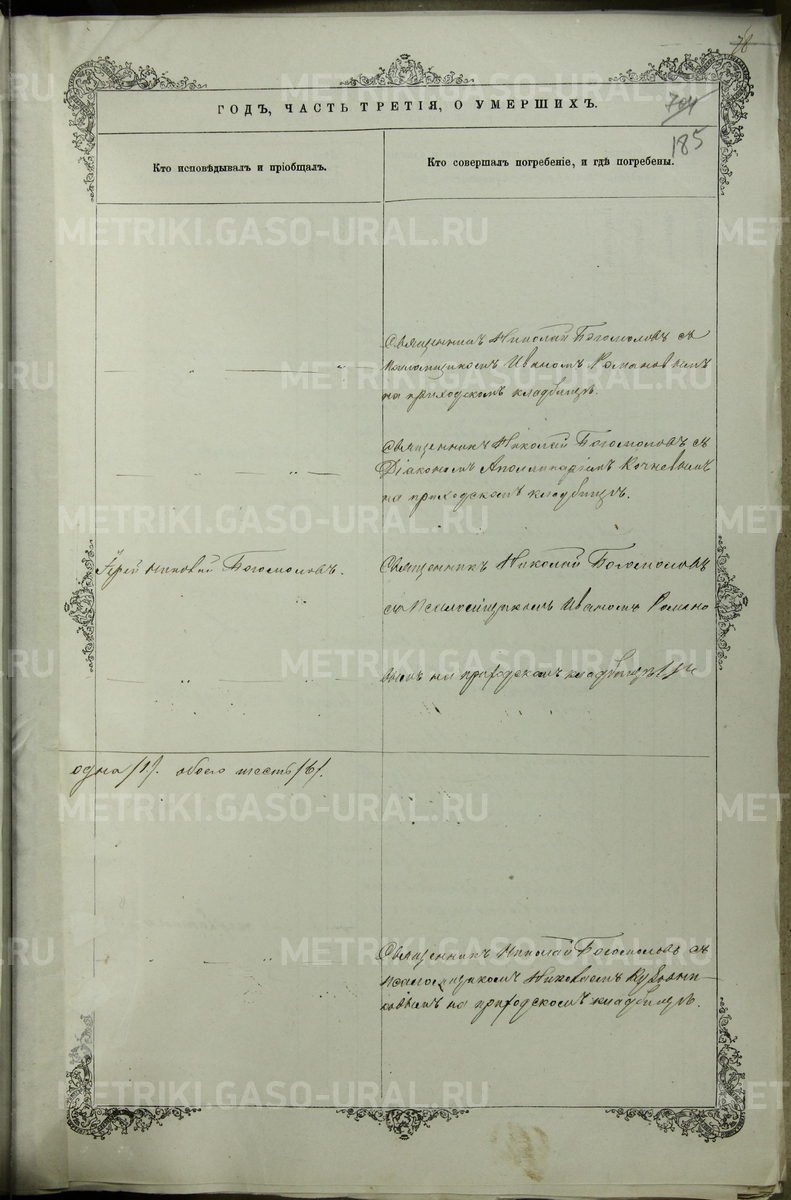 78
ГОДЪ, ЧАСТЬ ТРЕТІЯ, О УМЕРШИХЪ.
704
185
Кто исповѣдывалъ и пріобщалъ.
Кто совершалъ погребеніе, и гдѣ погребены.
Священникъ Николай Богомоловъ съ
Псаломщикомъ Иваномъ Романовымъ
на приходскомъ кладбищѣ.
Священникъ Николай Богомоловъ съ
Діакономъ Аполлинаріемъ Кочневымъ
на приходскомъ кладбищѣ.
Іерей Николай Богомоловъ.
Священникъ Николай Богомоловъ
съ Псаломщикомъ Иваномъ Романо
вымъ на приходскомъ кладбищѣ
одна /1/. обоего шесть /6/.
Священникъ Николай Богомоловъ съ
псаломщикомъ Николаемъ
на приходскомъ кладбищѣ.
METRIKI.GASO-URAL.RU